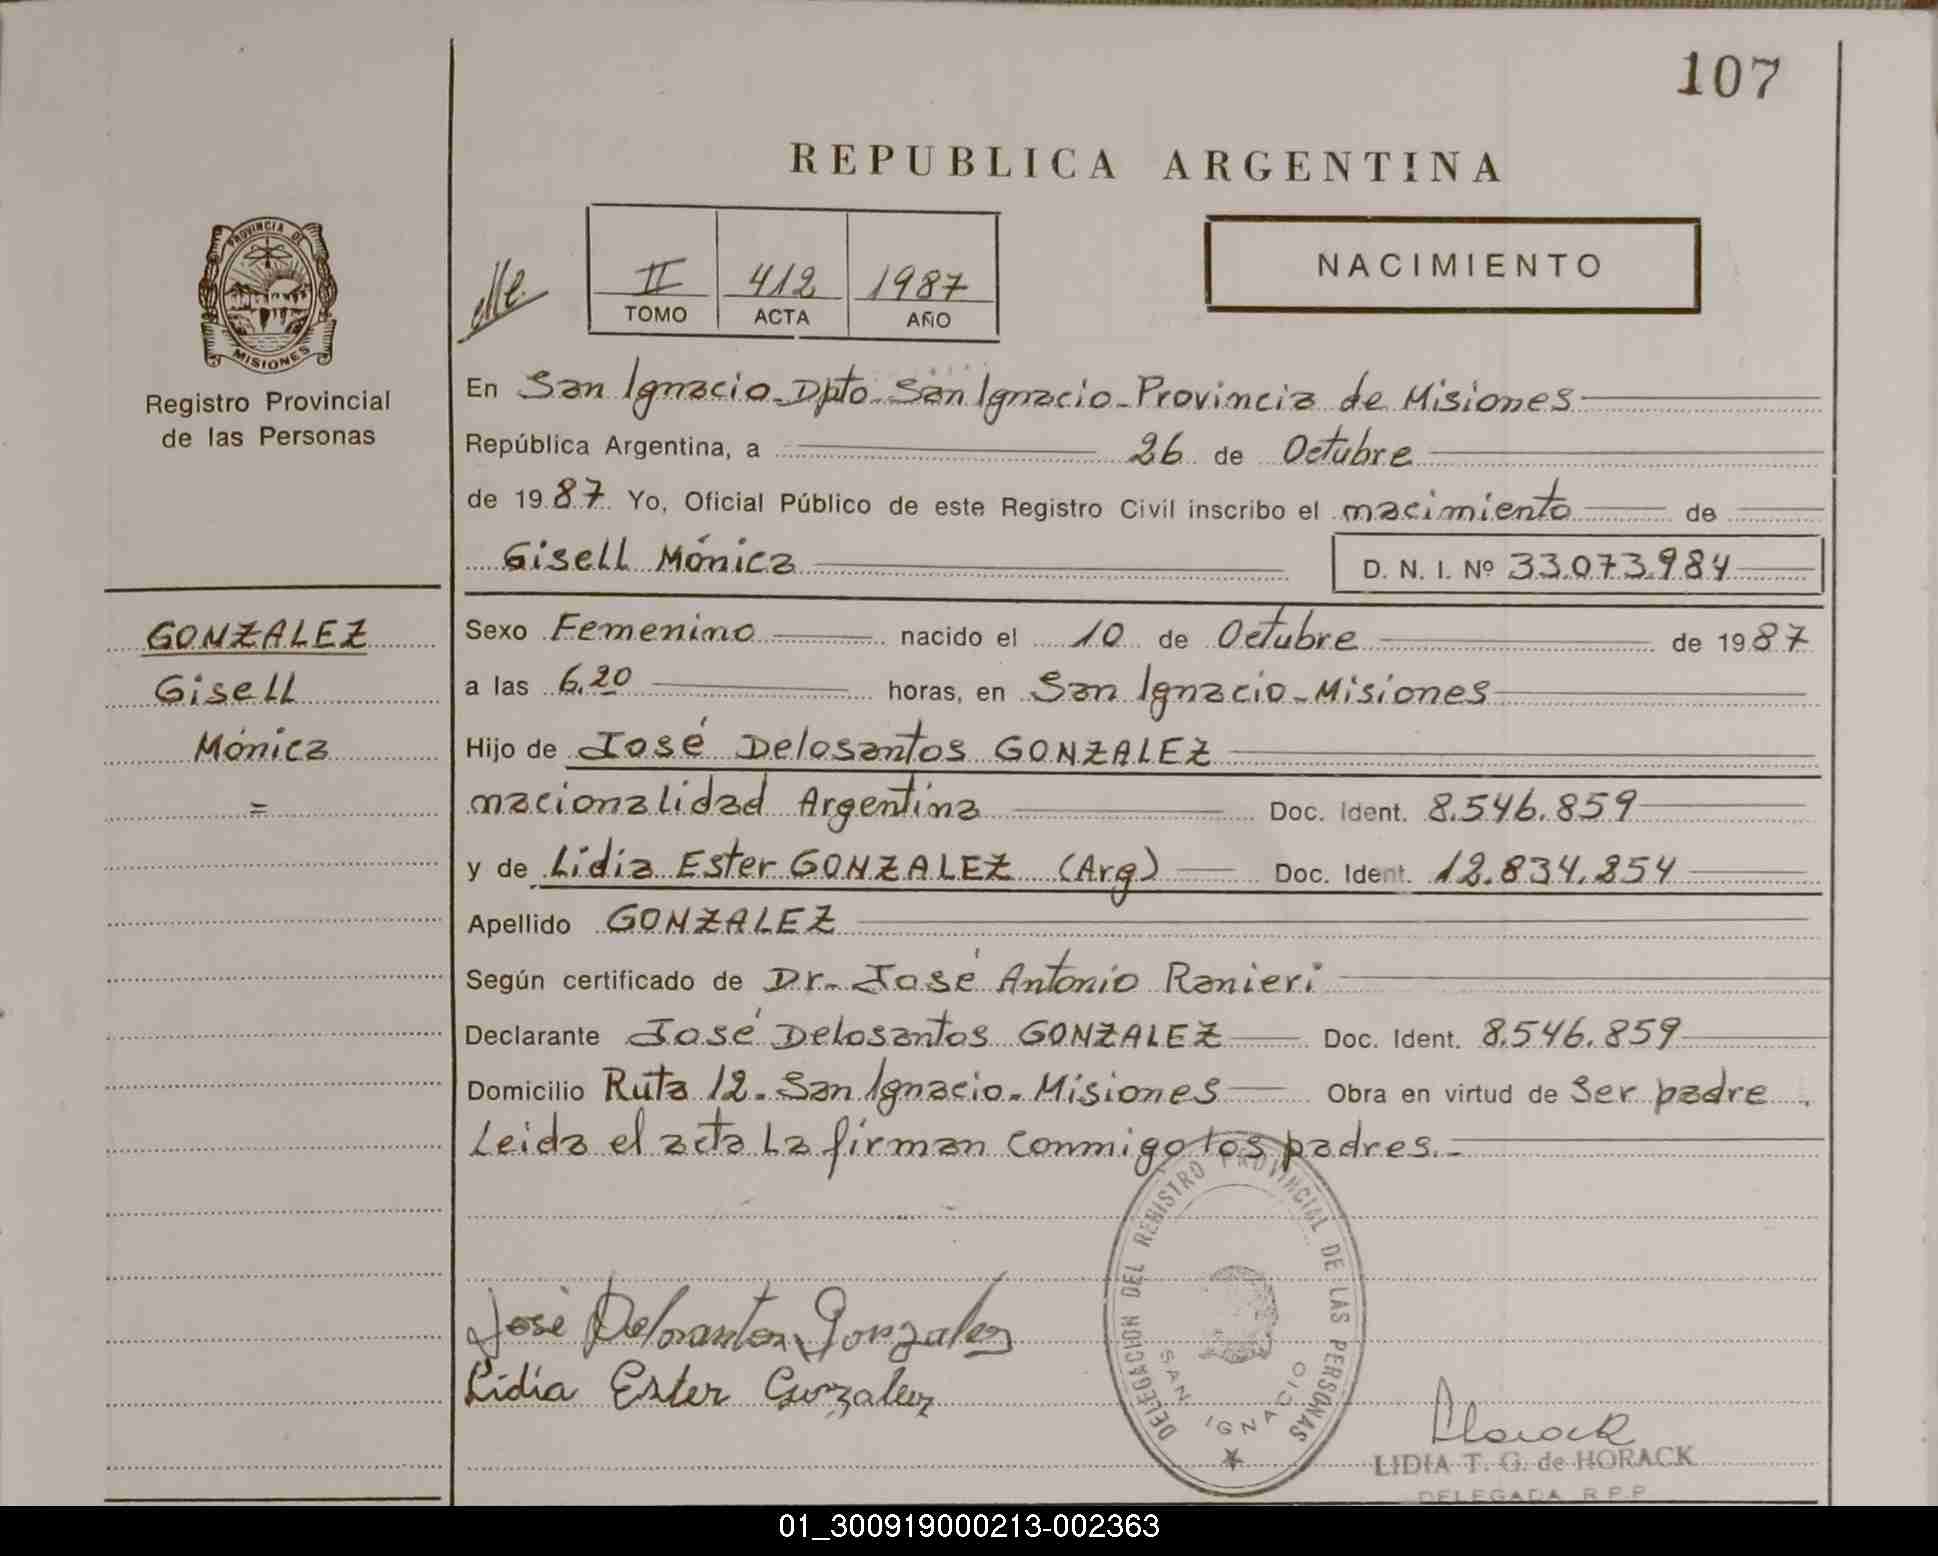 107
REPUBLICA ARGENTINA
PROVINCIA DE
MISIONES
Registro Provincial
de las Personas
II 412 1987
TOMO ACTA AÑO
NACIMIENTO
En San Ignacio-Dpto. San Ignacio-Provincia de Misiones
República Argentina, a 26 de Octubre
de 1987 Yo, Oficial Público de este Registro Civil inscribo el nacimiento de
Gisell Mónica D. N. I. Nº 33.073.984
GONZALEZ
Gisell
Mónica
=
Sexo Femenino nacido el 10 de Octubre de 1987
a las 6.20 horas, en San Ignacio-Misiones
Hijo de José Delosantos GONZALEZ
nacionalidad Argentina Doc. Ident. 8.546.859
y de Lidia Ester GONZALEZ (Arg) Doc. Ident. 12.834.254
Apellido GONZALEZ
Según certificado de Dr. José Antonio Ranieri
Declarante José Delosantos GONZALEZ Doc. Ident. 8.546.859
Domicilio Ruta 12. San Ignacio. Misiones Obra en virtud de ser padre.
Leida el acta la firman conmigo los padres.-
José Delosantos Gonzalez
Lidia Ester Gonzalez
DELEGACION DEL REGISTRO PROVINCIAL DE LAS PERSONAS
SAN IGNACIO
LIDIA T. G. de HORACK
DELEGADA R.P.P.
01_300919000213-002363